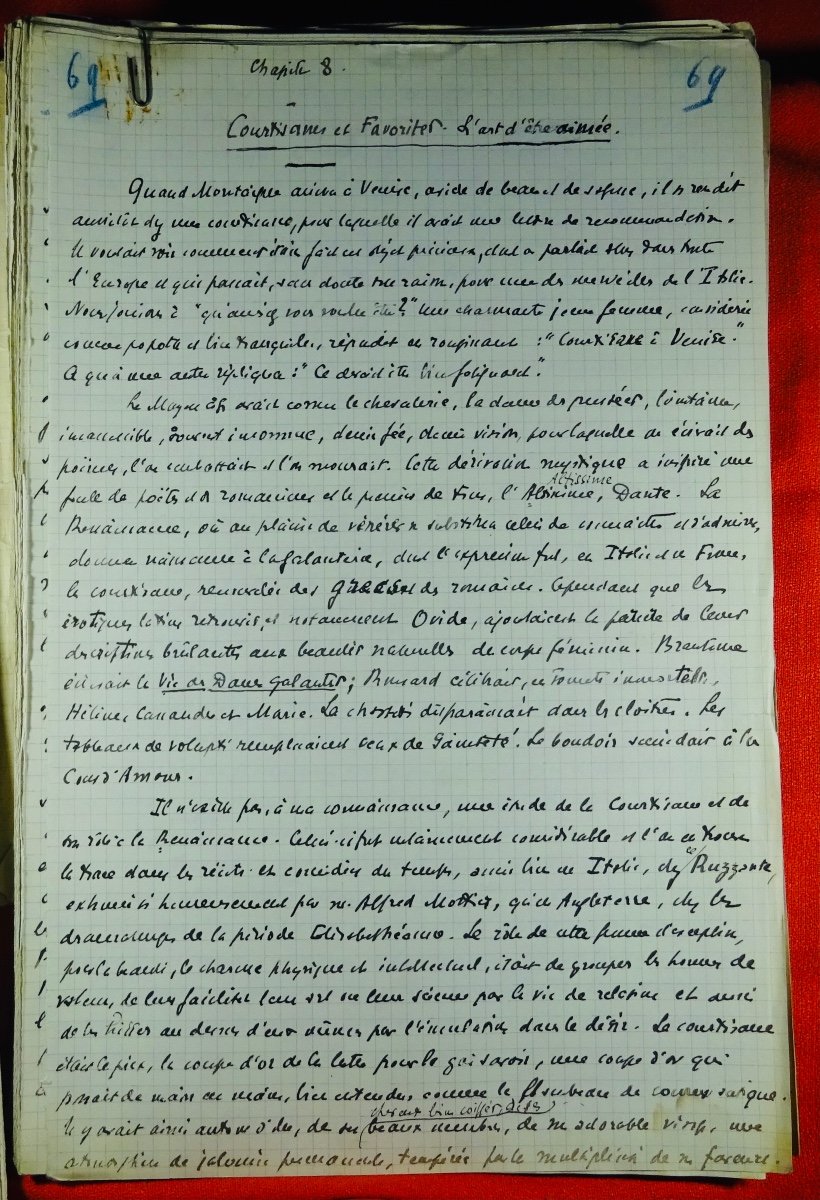 69 Chapitre 8. 69
Courtisanes et Favorites. L'art d'être aimée.
Quand Montaigne arriva à Venise, avide de beau et de sagesse, il se rendit
aussitôt chez une courtisane, pour laquelle il avait une lettre de recommandation.
Il voulait voir comment était fait cet objet précieux, dont on parlait dans toute
l'Europe et qui passait, sans doute avec raison, pour une des merveilles de l'Italie.
"qu'auriez vous voulu être?" Une charmante jeune femme, considérée
comme et bien tranquille, répondit en rougissant : "Courtisane à Venise."
A quoi une autre répliqua : "Ce devait être bien fatigant".
Le Moyen âge avait connu la chevalerie, la dame des pensées, lointaine,
inaccessible, souvent inconnue, demi fée, demi vision, pour laquelle on écrivait des
poèmes, l'on combattait et l'on mourait. Cette dérivation mystique a inspiré une
foule de poètes et de romanciers et le premier de tous, l'Altissime, Altissime Dante. La
Renaissance, où au plaisir de vénérer se substitua celui de connaître et d'admirer,
donna naissance à la galanterie, dont l'expression fut, en Italie et en France,
la courtisane, renouvelée des grecs et des romains. Cependant que les
érotiques latins retrouvés, et notamment Ovide, ajoutaient la patine de leurs
descriptions brûlantes aux beautés naturelles du corps féminin. Brantôme
écrivait la Vie des Dames Galantes; Ronsard célébrait, en sonnets immortels,
Hélène, Cassandre et Marie. La chasteté disparaissait dans les cloîtres. Les
tableaux de volupté remplaçaient ceux de Sainteté. Le boudoir succédait à la
Cour d'Amour.
Il n'existe pas, à ma connaissance, une étude de la Courtisane et de
son rôle à la Renaissance. Celui-ci fut certainement considérable et l'on en trouve
la trace dans les récits et comédies du temps, aussi bien en Italie, chez ce Ruzzante,
exhumé si heureusement par M. Alfred Mortier, qu'en Angleterre, chez les
dramaturges de la période Elisabethéenne. Le rôle de cette femme d'exception,
par la beauté, le charme physique et intellectuel, était de grouper les hommes de
valeur, de leur faciliter leur art ou leur science par la vie de relation et aussi
de les hisser au dessus d'eux mêmes par l'émulation dans le désir. La courtisane
était le prix, la coupe d'or de la lutte pour le gai savoir, une coupe d'or qui
passait de main en main, bien entendu, comme le flambeau du coureur antique.
Il y avait ainsi autour d'elle, de ses cheveux bien coiffés, de ses beaux membres, de son adorable visage, une
atmosphère de jalousie permanente, tempérée par la multiplicité de ses faveurs.